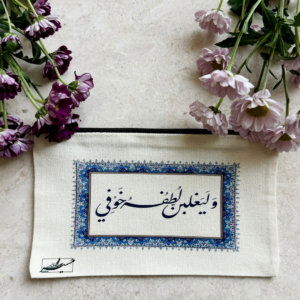 وَلَيَغلبن لُطفه خَوفي